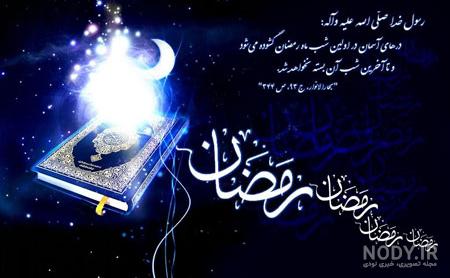 رسول خدا صلّی الله علیه وآله:
درهای آسمان در اولین شب ماه رمضان گشوده می‌شود
و تا آخرین شب آن بسته نخواهد شد.
"بحارالانوار، ج ۹۳، ص ۳۴۴"
رمضان
رمضان
رمضان
رمضان
NODY.IR
مجله تصویری، خبری نودی